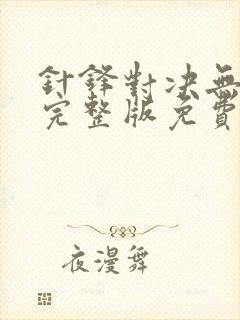 針鋒對决無
完整版免費
夜漫舞